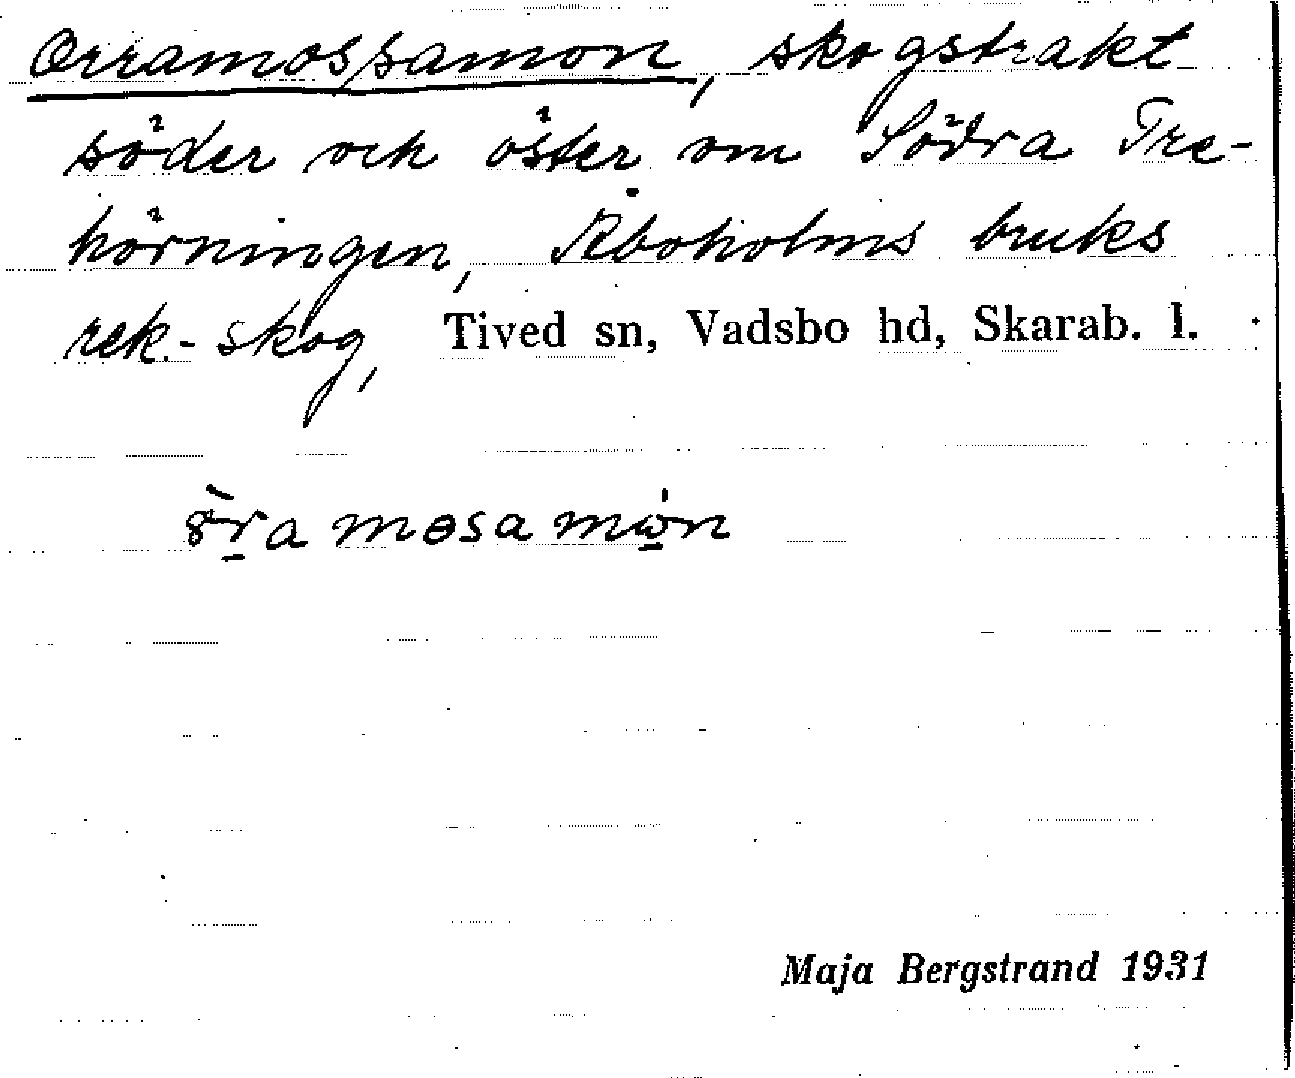 Orramossamon, skogstrakt
söder och öster om Södra Tre-
hörningen, Åboholms bruks
rek.-skog, Tived sn, Vadsbo hd, Skarab. l.
Maja Bergstrand 1931